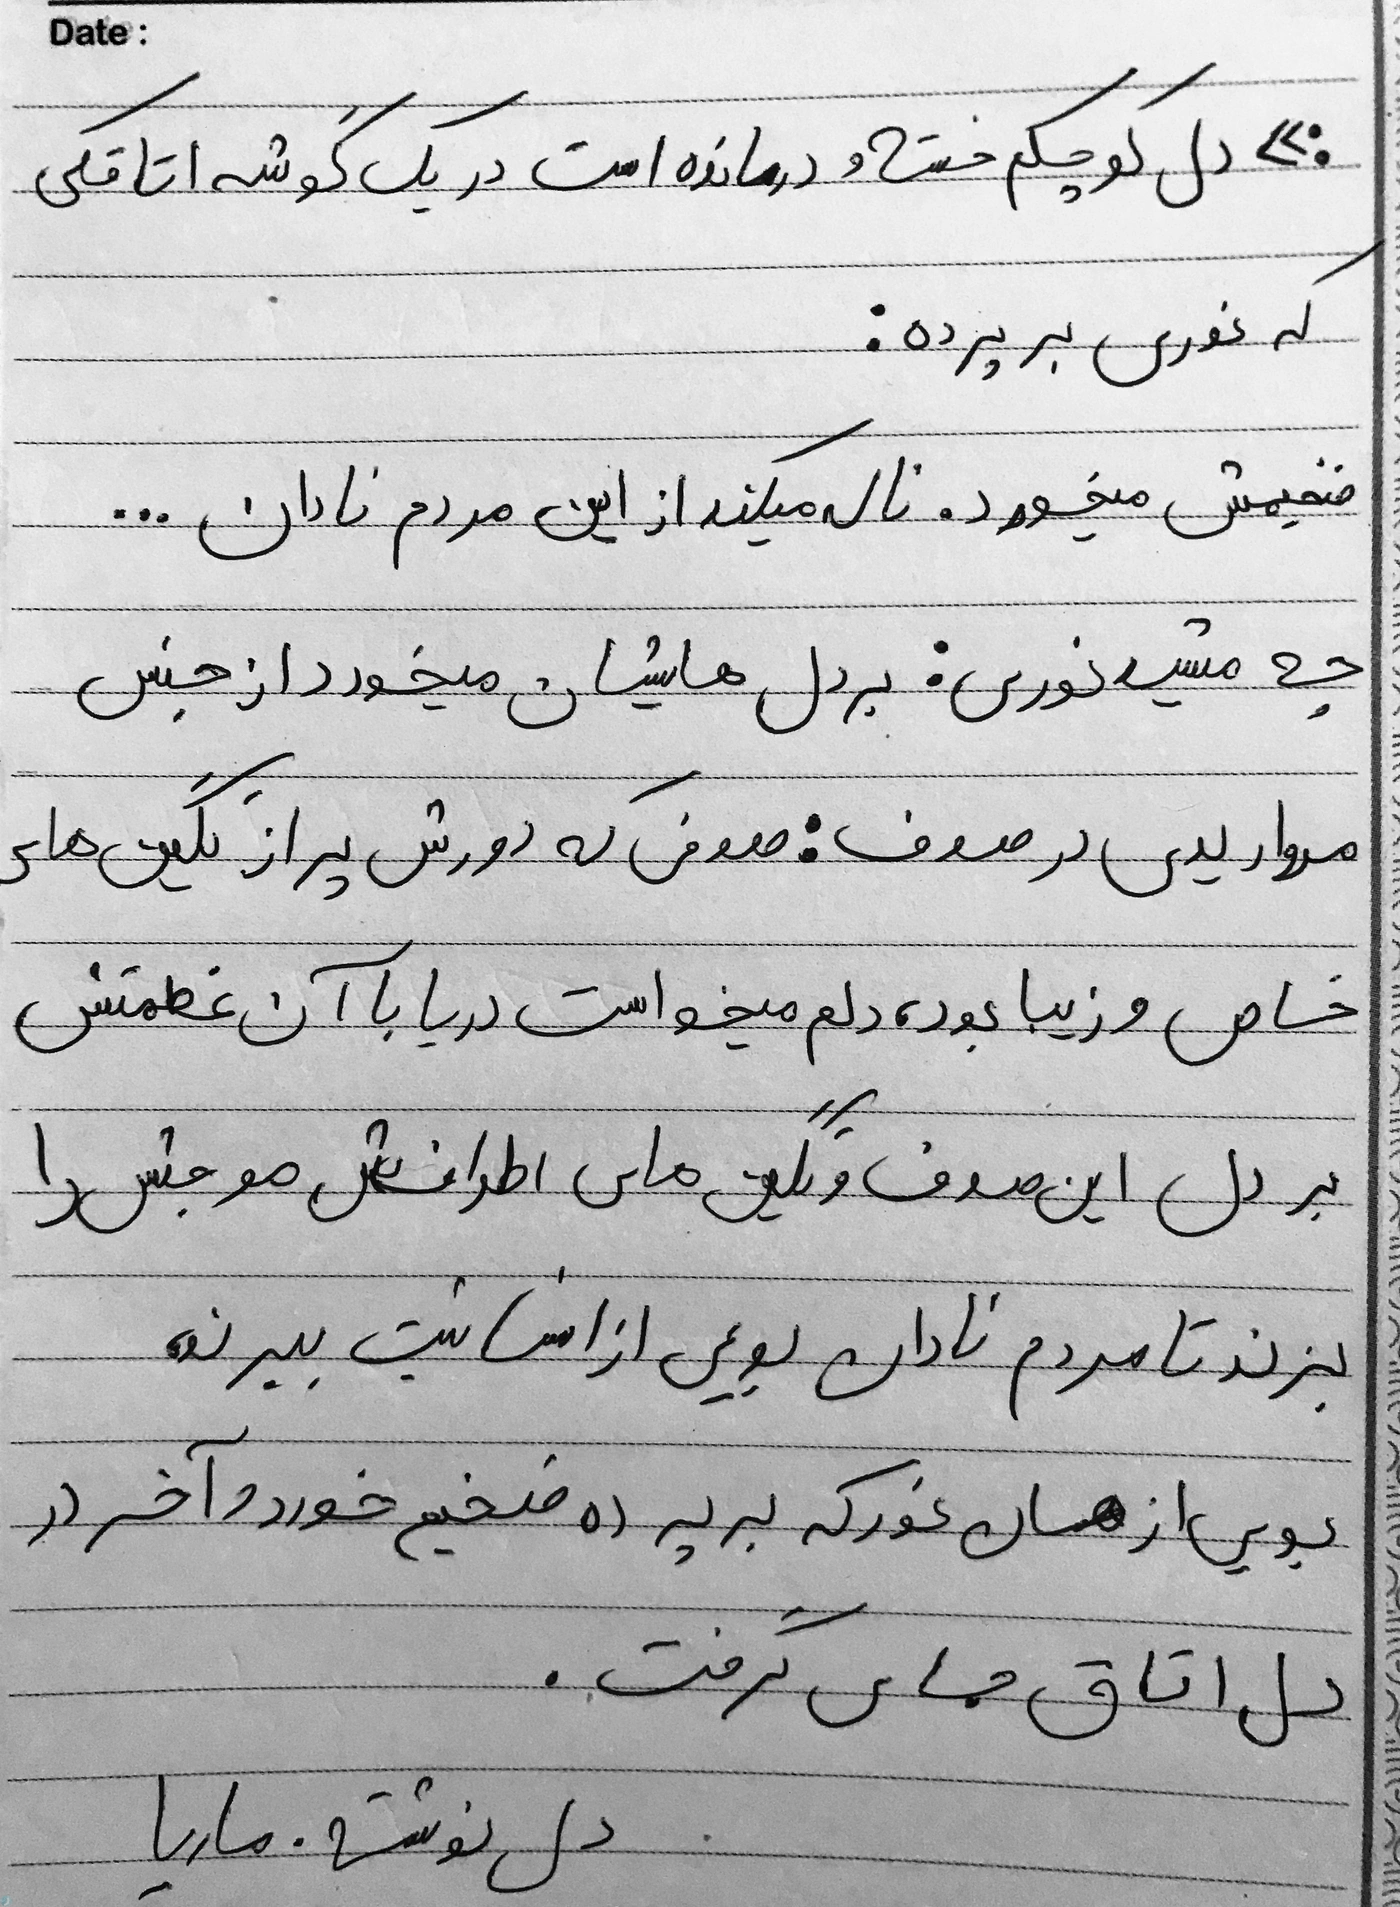 Date :
دل کوچکم خسته و درمانده است در یک گوشه اتاقکی
که نوری بر پرده :
ضخیمش میخورد. ناله میکند از این مردم نادان ...
چه میشد نوری : بر دل هایشان میخورد از جنس
مرواریدی در صدف : صدفی که دورش پر از نگین های
خاص و زیبا بود، دلم میخواست دریا با آن عظمتش
بر دل این صدف و نگین های اطرافش موجش را
بزند تا مردم نادان بویی از انسانیت ببرند
بویی از همان نور که بر پرده ضخیم خورد و آخر در
دل اتاق جای گرفت .
دل نوشته . ماریا